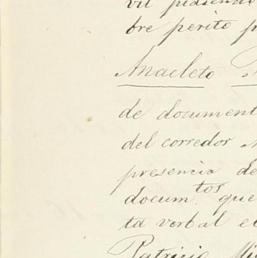 bre perito p
Anacleto
de document
del corredor
presencia de
docum.tos que
ta verbal e
Patricio Mi